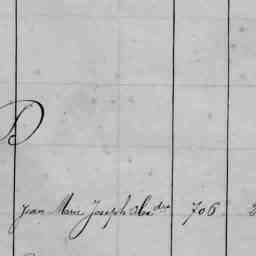 D
Jean Marie Joseph Alex.dre 706 2